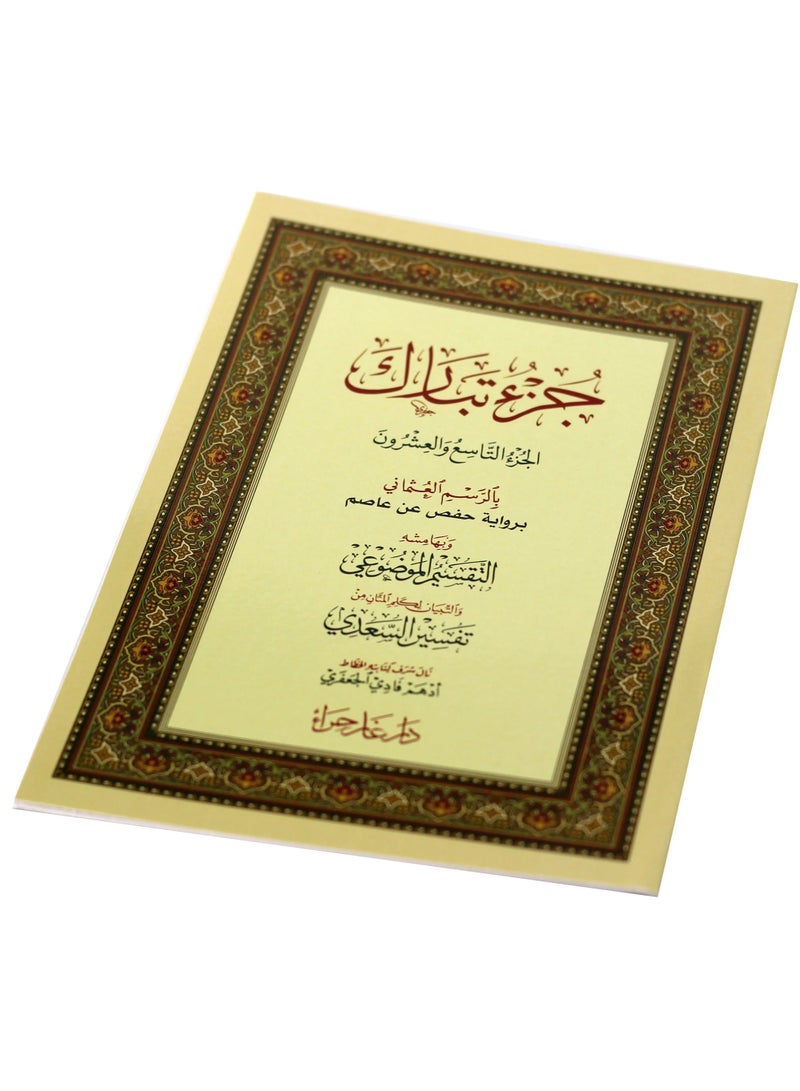 جُزْءُ تَبَارَكَ
الجُزْءُ التَّاسِعُ وَالعِشْرُونَ
بِالرَّسْمِ العُثْمَانِي
برواية حفص عن عاصم
وَبِهَامِشِهِ
التَّقْسِيمُ المَوْضُوعِيُّ
وَالتِّبْيَانُ لِكَلِمِ المَنَّانِ مِنْ
تَفْسِيرِ السَّعْدِيّ
نَالَ شَرَفَ كِتَابَتِهِ الخَطَّاطُ
أدهَم فَادِي الجَعْفَرِيّ
دَار غَار حِرَاء